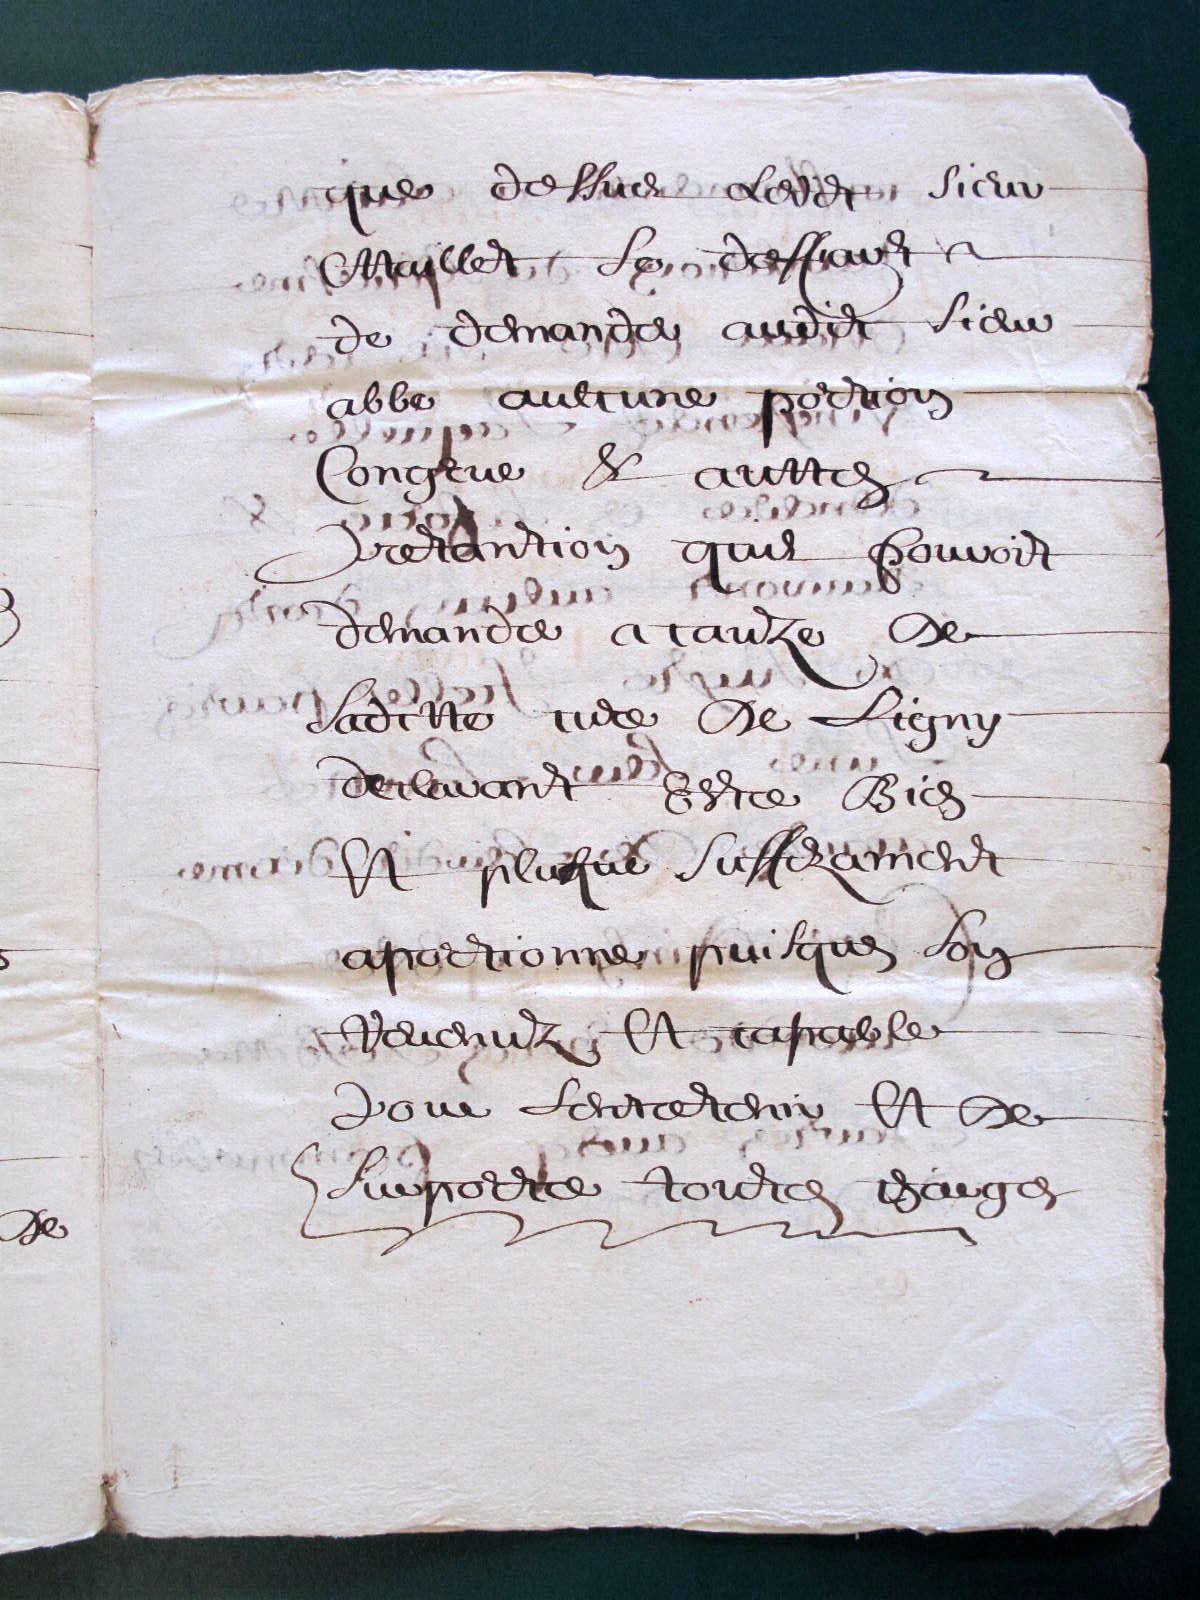 que dessus ledit sieur
Maillet se deffandt
de demander audit sieur
abbe aulcune portion
Congrue & auttres
pretantion quil pouvoit
demander a cauze de
laditte cure de Ligny
declarant Estre Bien
Et plusque suffizament
aportionne puisques son
Revenuz Et capable
pour lentretenir Et de
suporter toutes charges
De